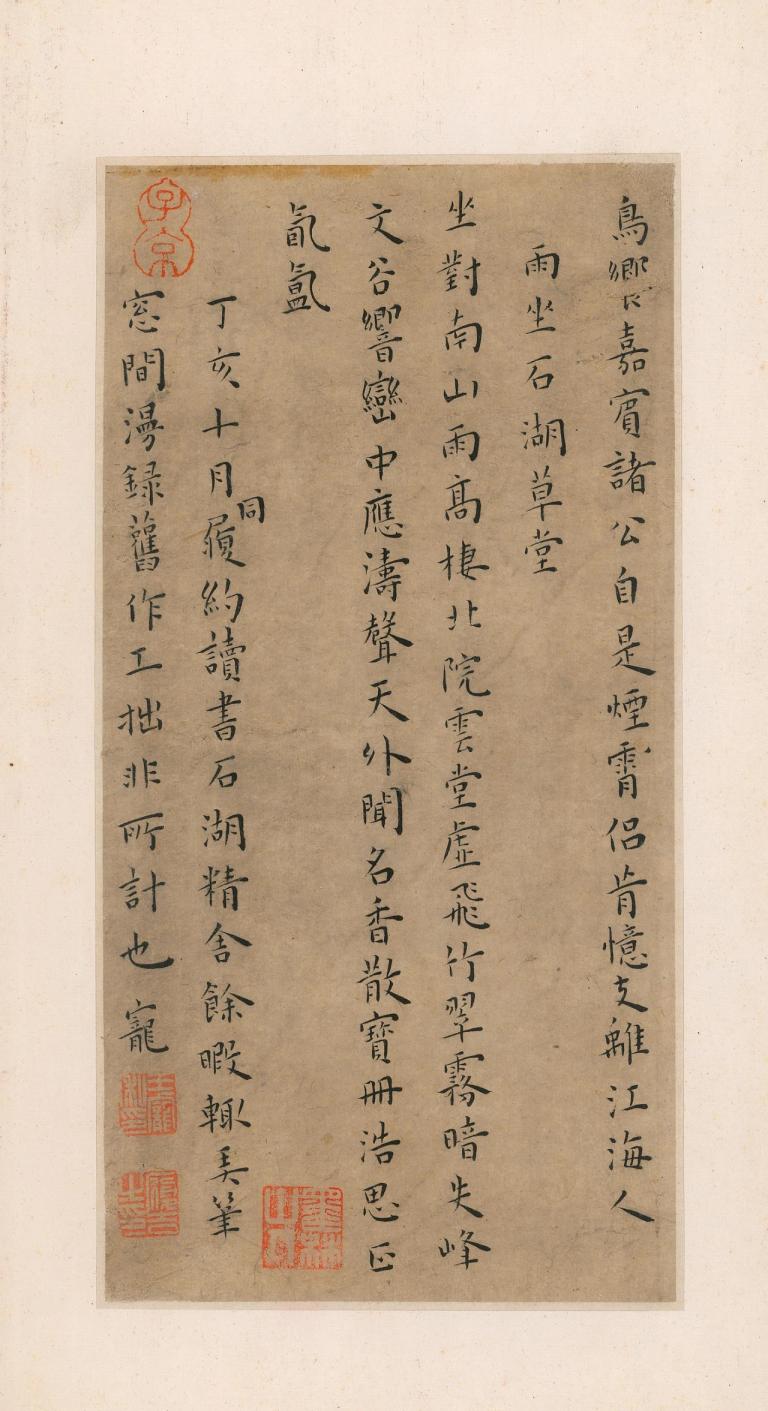 鳥饗嘉賓諸公自是煙霄侶肯憶支離江海人
雨坐石湖草堂
坐對南山雨高棲北院雲堂虛飛竹翠霧暗失峰
文谷響巒中應濤聲天外聞名香散寶冊浩思正
氤氳
丁亥十月同履約讀書石湖精舍餘暇輒弄筆
窓間漫録舊作工拙非所計也 寵
子京
王寵私印
履吉之印